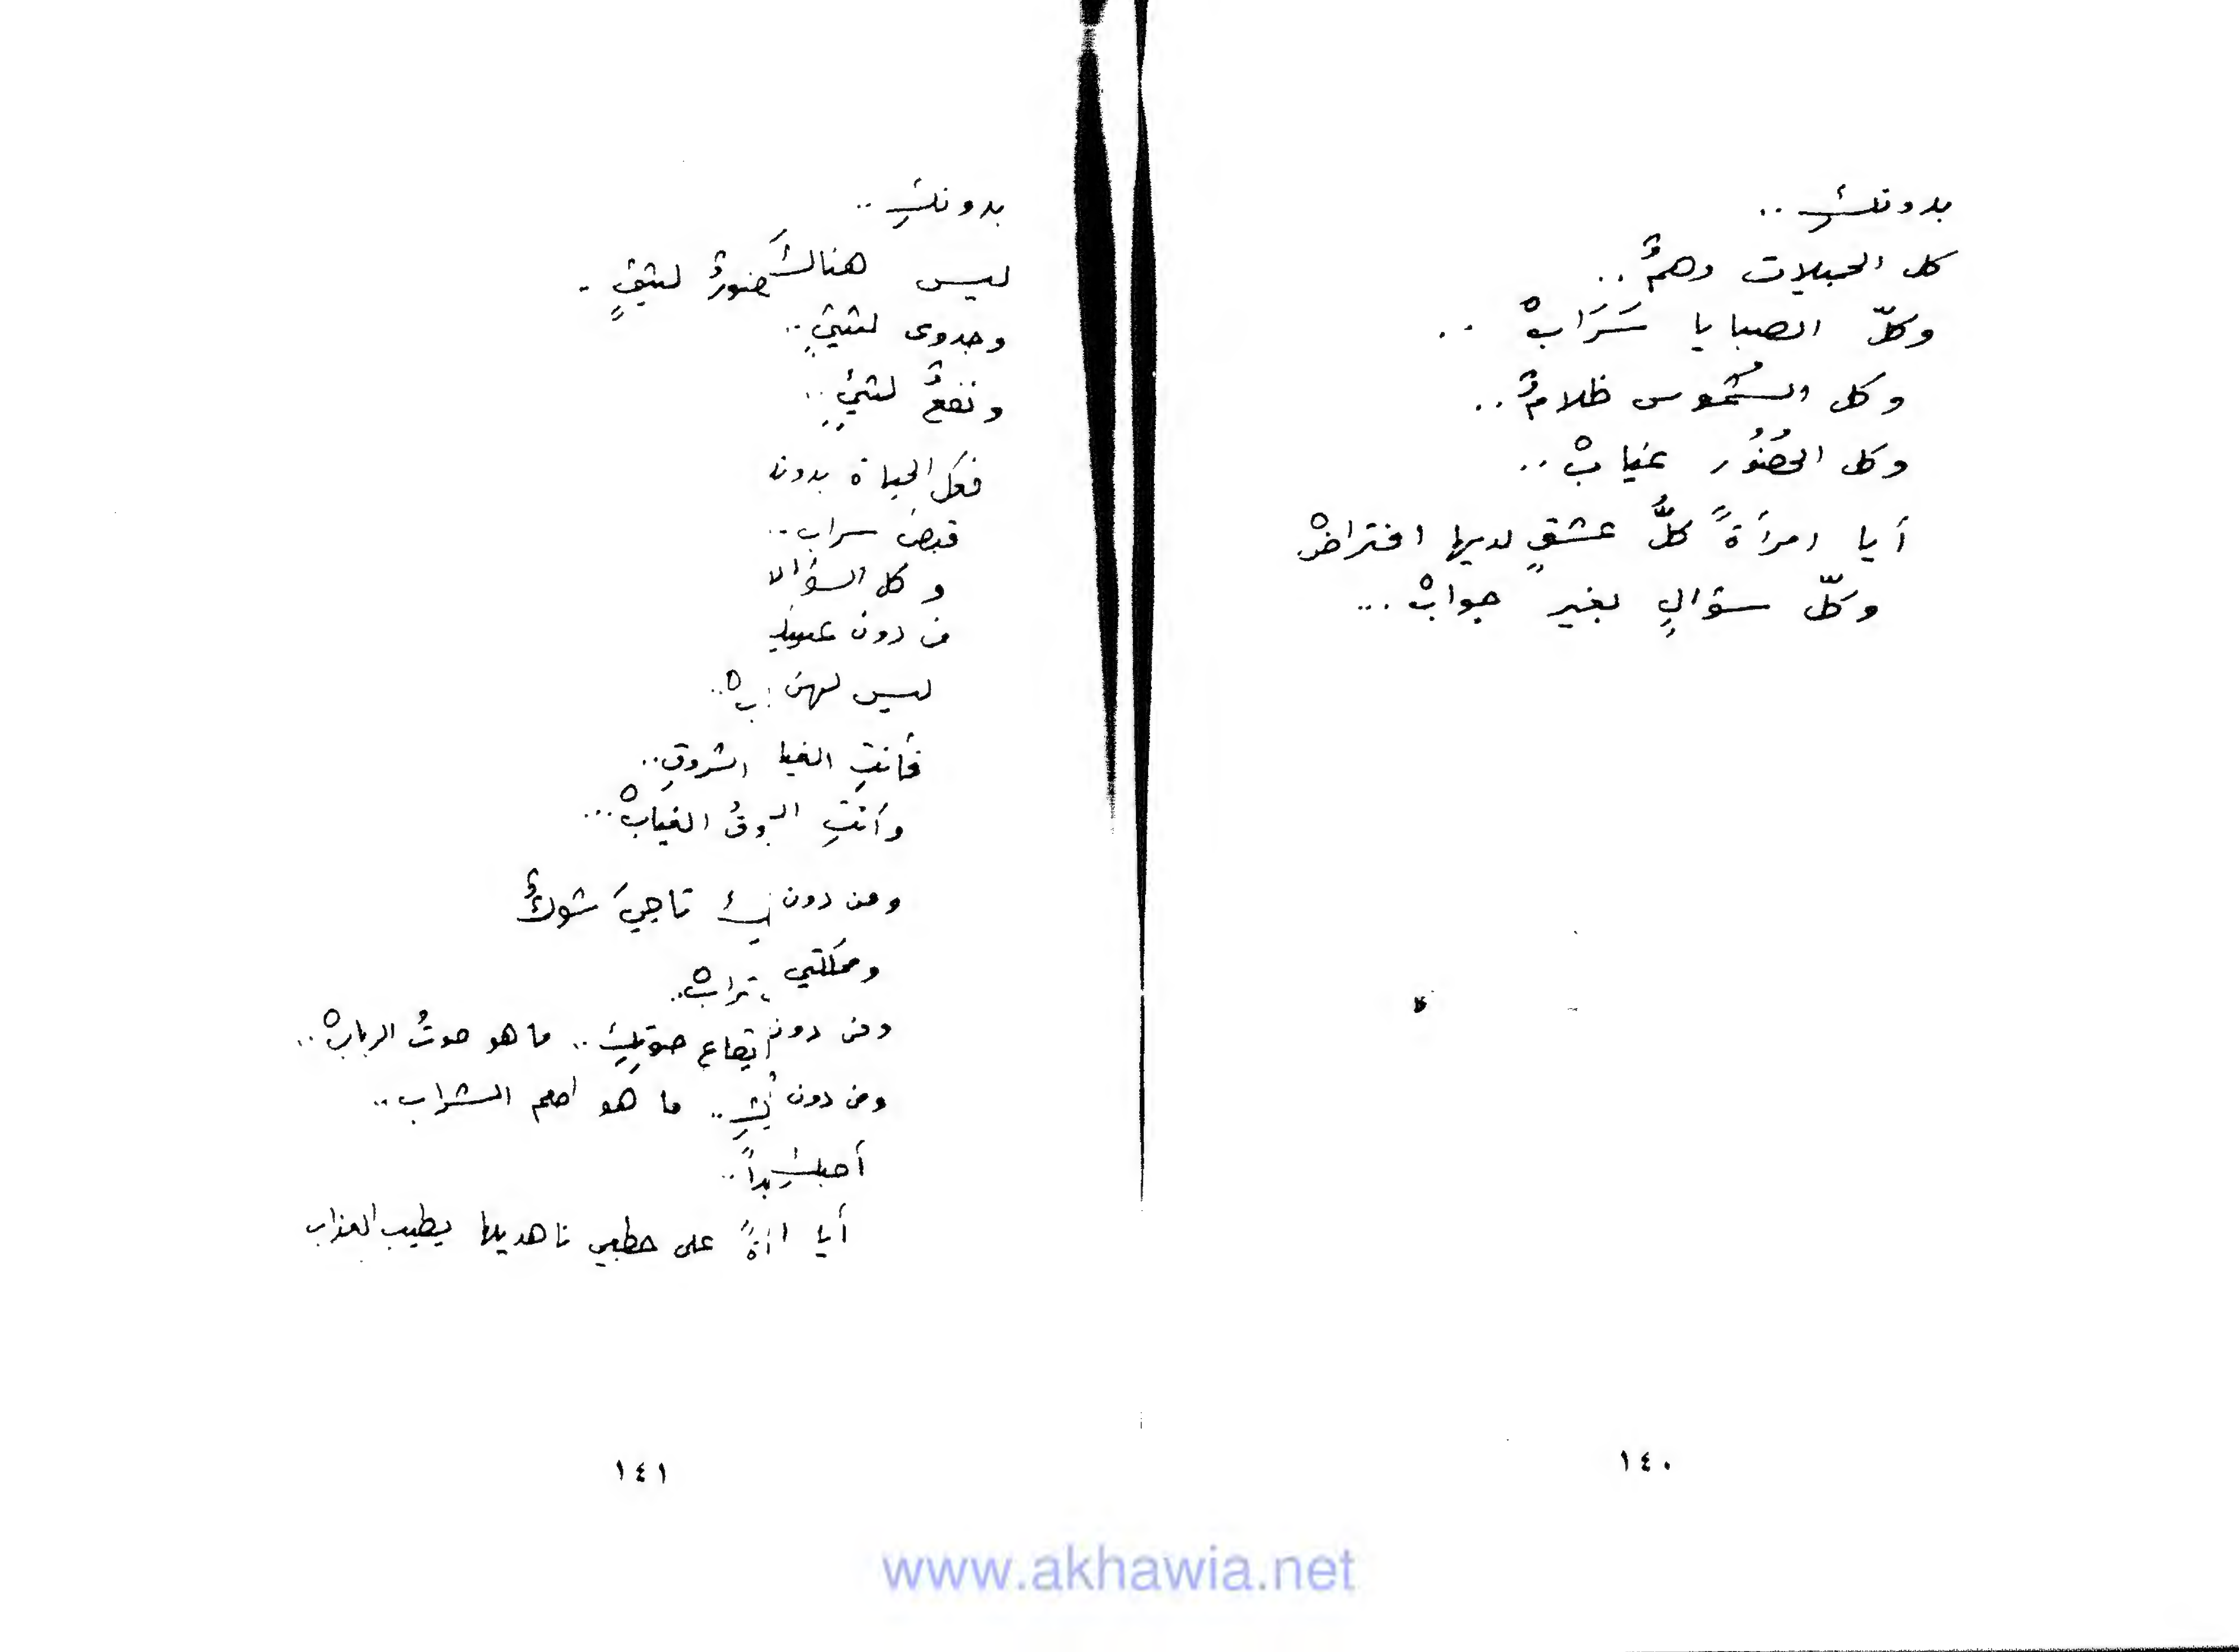 بدونكِ ..
كل الجميلات وهمٌ ..
وكلّ الصبايا سَرَابْ ..
وكل الشُموس ظلامٌ ..
وكل الحُضُور غيابْ ..
أيا امرأةً كلُّ عشقٍ لديها افتراضْ
وكلّ سؤالٍ بغير جوابْ ...
١٤٠
بدونكِ ..
ليس هناكَ لشيءٍ
وجدوى لشيءٍ ..
ونفعٌ لشيءٍ ..
فكل الحياة بدون
قبض سراب ..
وكل
من دون
ليس لهن
فأنتِ الشروقِ ..
وأنتِ الغيابْ ...
ومن دون تاجيَ شوكٌ
ومملكتي ترابْ ..
ومن دون ايقاع صوتكِ .. ما هو صوتُ الربابْ ..
ومن دون .. ما هو الشراب ..
أحبكِ
أيا على ناهديها يطيب العذاب
١٤١
www.akhawia.net